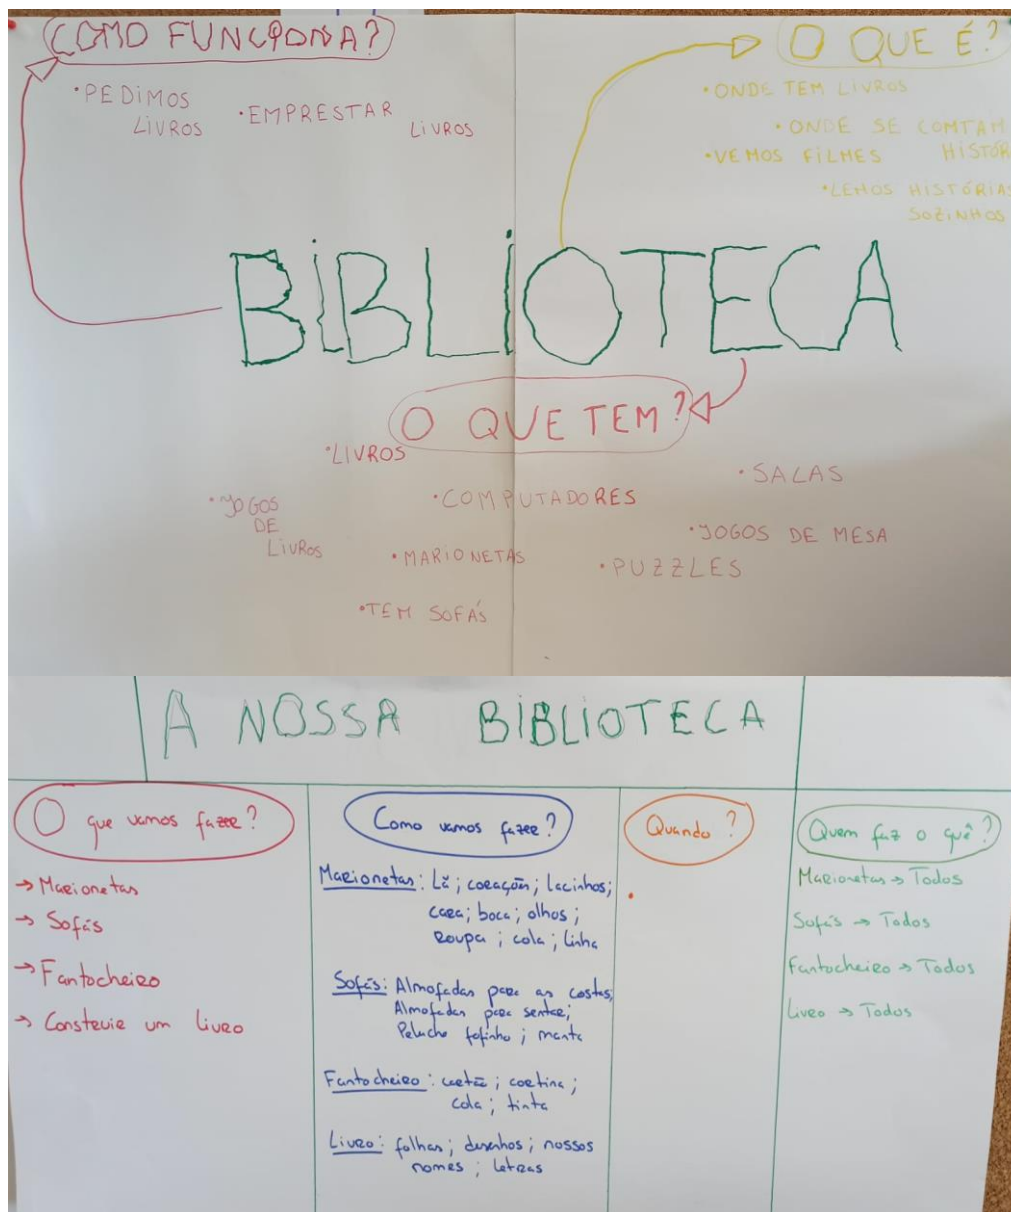 COMO FUNCIONA?
• PEDIMOS
LIVROS
• EMPRESTAR
LIVROS
O QUE É?
• ONDE TEM LIVROS
• ONDE SE COMTAM
HISTÓR
• VEMOS FILMES
• LEMOS HISTÓRIAS
SOZINHOS
BIBLIOTECA
O QUE TEM?
• LIVROS
• JOGOS
DE
LIVROS
• COMPUTADORES
• SALAS
• MARIONETAS
• JOGOS DE MESA
• PUZZLES
• TEM SOFÁS
A NOSSA BIBLIOTECA
O que vamos fazer?
→ Marionetas
→ Sofás
→ Fantocheiro
→ Construir um livro
Como vamos fazer?
Marionetas: Lã; corações; lacinhos;
cara; boca; olhos;
roupa; cola; linha
Sofás: Almofadas para as costas;
Almofadas para sentar;
Peluche fofinho; manta
Fantocheiro: cartão; cortina;
cola; tinta
Livro: folhas; desenhos; nossos
nomes; letras
Quando?
•
Quem faz o quê?
Marionetas → Todos
Sofás → Todos
Fantocheiro → Todos
Livro → Todos